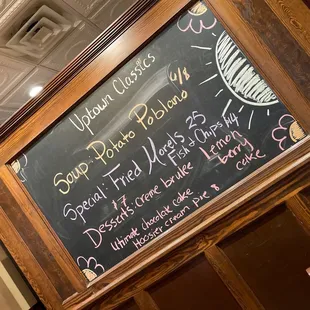 Uptown Classics
Soup: Potato Poblano 6/8
Special: Fried Morels 25
Fish & Chips $14
Desserts: Creme brulee Lemon
$7 berry
Ultimate chocolate cake cake
Hoosier cream pie 8